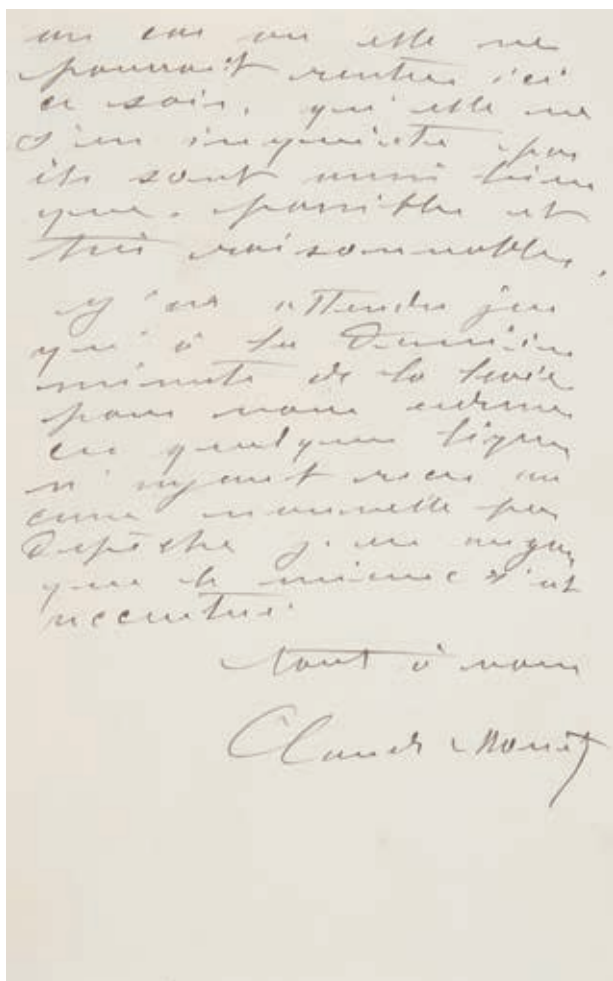 au cas où elle ne
pourrait rentrer ici
ce soir, qu'elle ne
s'en inquiète pas
ils sont aussi bien
que possible et
très raisonnables.
J'ai attendu jus
qu'à la dernière
minute de la levée
pour vous adresser
ces quelques lignes
n'ayant reçu au
cune nouvelle par
dépêche j'en augure
que le mieux s'est
accentué.
tout à vous
Claude Monet